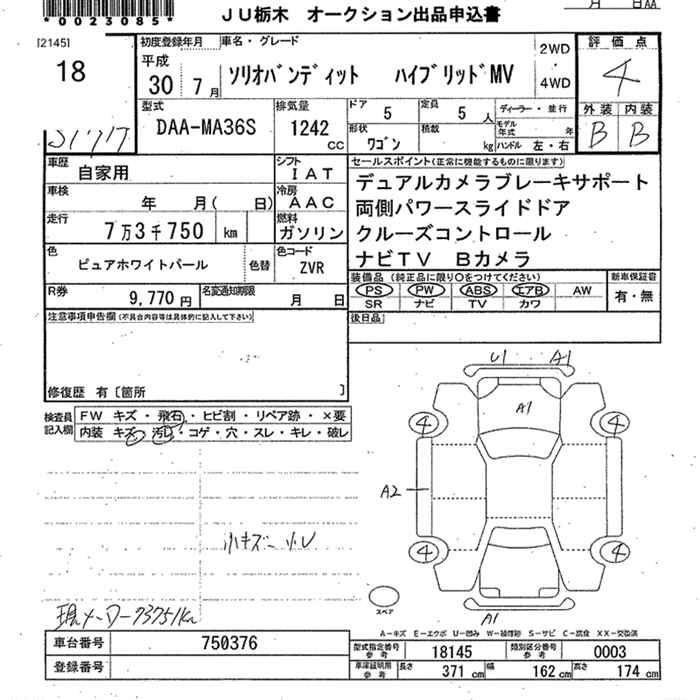 *0023085*
JU栃木 オークション出品申込書
月 日AA
[2145]
18
初度登録年月
平成
30 7月
車名・グレード
ソリオバンディット ハイブリッドMV
2WD
4WD
評価点
4
型式
DAA-MA36S
排気量
1242
CC
ドア
5
定員
5人
ディーラー・並行
モデル年式 年
形状
ワゴン
積載
kg
ハンドル 左・右
外装 内装
B B
車歴
自家用
シフト
IAT
車検
年 月( 日)
冷房
AAC
走行
7万3千750 km
燃料
ガソリン
色
ピュアホワイトパール
色替
色コード
ZVR
R券
9,770円
名変通知期限
月 日
セールスポイント(正常に機能するものに限ります)
デュアルカメラブレーキサポート
両側パワースライドドア
クルーズコントロール
ナビTV Bカメラ
装備品(純正品に限り○をつけてください)
PS PW ABS エアB AW
SR ナビ TV カワ
新車保証書
有・無
後日品
注意事項申告欄(不具合内容等は具体的に記入して下さい)
修復歴 有〔箇所 〕
検査員記入欄
FW キズ・飛石・ヒビ割・リペア跡・×要
内装 キズ・汚レ・コゲ・穴・スレ・キレ・破レ
小キズ 小U
現メーター73751km
U1 A1
A1
4 4
A2
4 4
A1
スペア
A-キズ E-エクボ U-凹み W-補修跡 S-サビ C-腐食 XX-交換済
車台番号 750376
登録番号
型式指定番号参考 18145 類別区分番号参考 0003
車庫証明用参考 長さ 371cm 幅 162cm 高さ 174cm